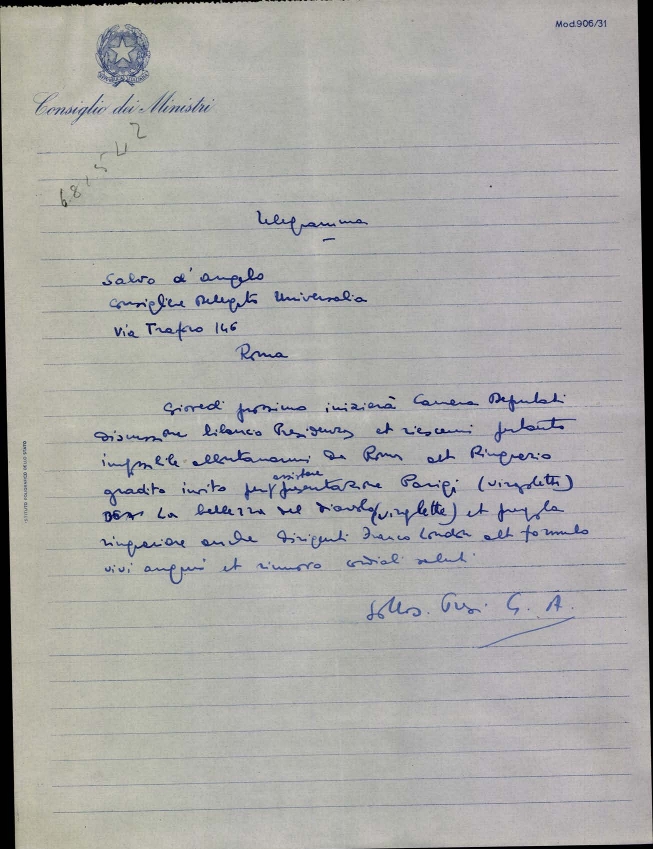 Mod.906/31
Consiglio dei Ministri
681542
Telegramma
Salvo d'Angelo
Consigliere Delegato Universalia
Via Traforo 146
Roma
Giovedì prossimo inizierà Camera Deputati
discussione bilancio Presidenza et riescemi pertanto
impossibile allontanarmi da Roma alt Ringrazio
assistere
gradito invito per presentazione Parigi (virgolette)
La bellezza del diavolo (virgolette) et pregola
ringraziare anche Dirigenti Franco London alt formulo
vivi auguri et rinnovo cordiali saluti
Sottos. Pres. G. A.
ISTITUTO POLIGRAFICO DELLO STATO